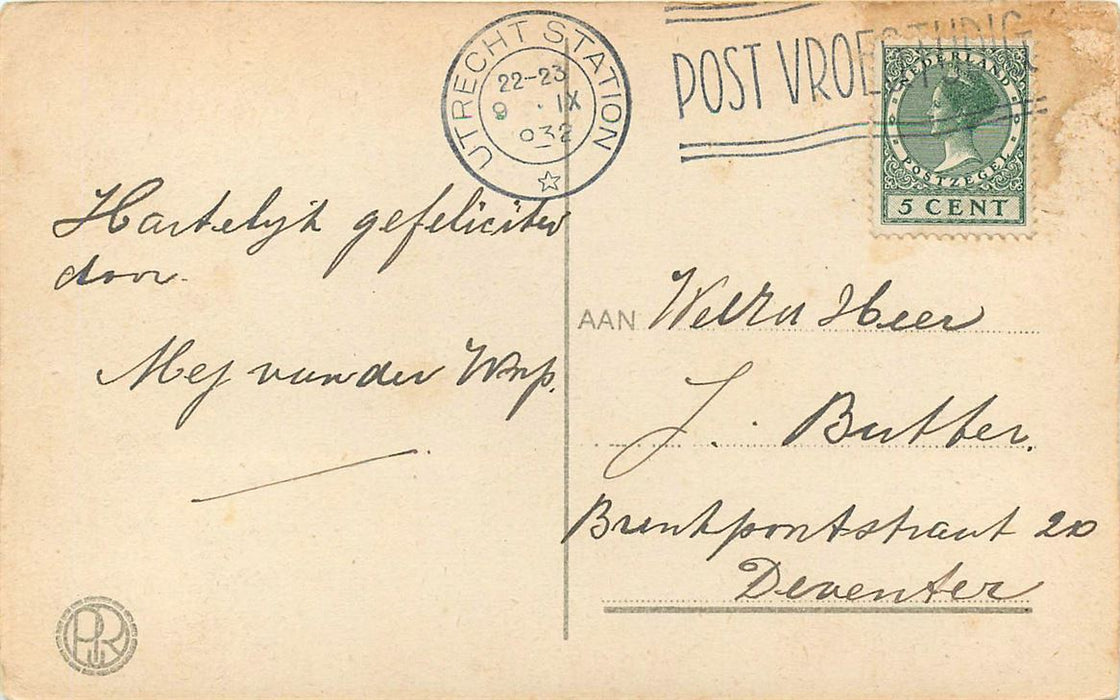 UTRECHT STATION
22-23
9 · IX
932
POST VROEGTIJDIG
NEDERLAND
POSTZEGEL
5 CENT
Hartelijk gefeliciteerd
door
Mej van der
AAN WelEd Heer
J. Butter.
Brinkpoortstraat 20
Deventer